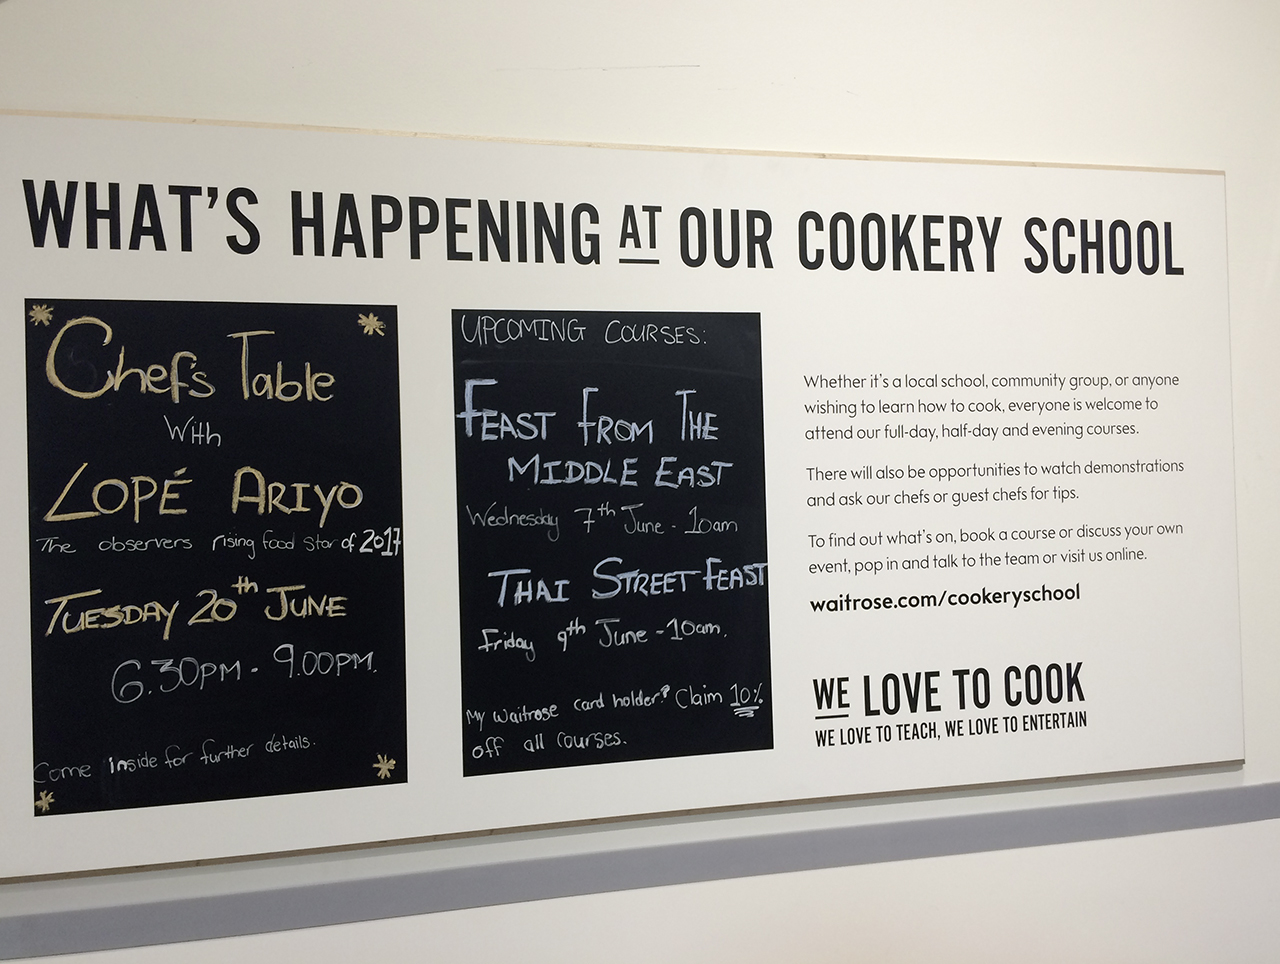 WHAT'S HAPPENING AT OUR COOKERY SCHOOL
Chef's Table
With
LOPÉ ARIYO
The observers rising food star of 2017
TUESDAY 20th JUNE
6.30PM - 9.00PM.
Come inside for further details.
UPCOMING COURSES:
FEAST FROM THE
MIDDLE EAST
Wednesday 7th June - 10am
THAI STREET FEAST
Friday 9th June - 10am.
My Waitrose card holder? Claim 10%
off all courses.
Whether it's a local school, community group, or anyone
wishing to learn how to cook, everyone is welcome to
attend our full-day, half-day and evening courses.
There will also be opportunities to watch demonstrations
and ask our chefs or guest chefs for tips.
To find out what's on, book a course or discuss your own
event, pop in and talk to the team or visit us online.
waitrose.com/cookeryschool
WE LOVE TO COOK
WE LOVE TO TEACH, WE LOVE TO ENTERTAIN